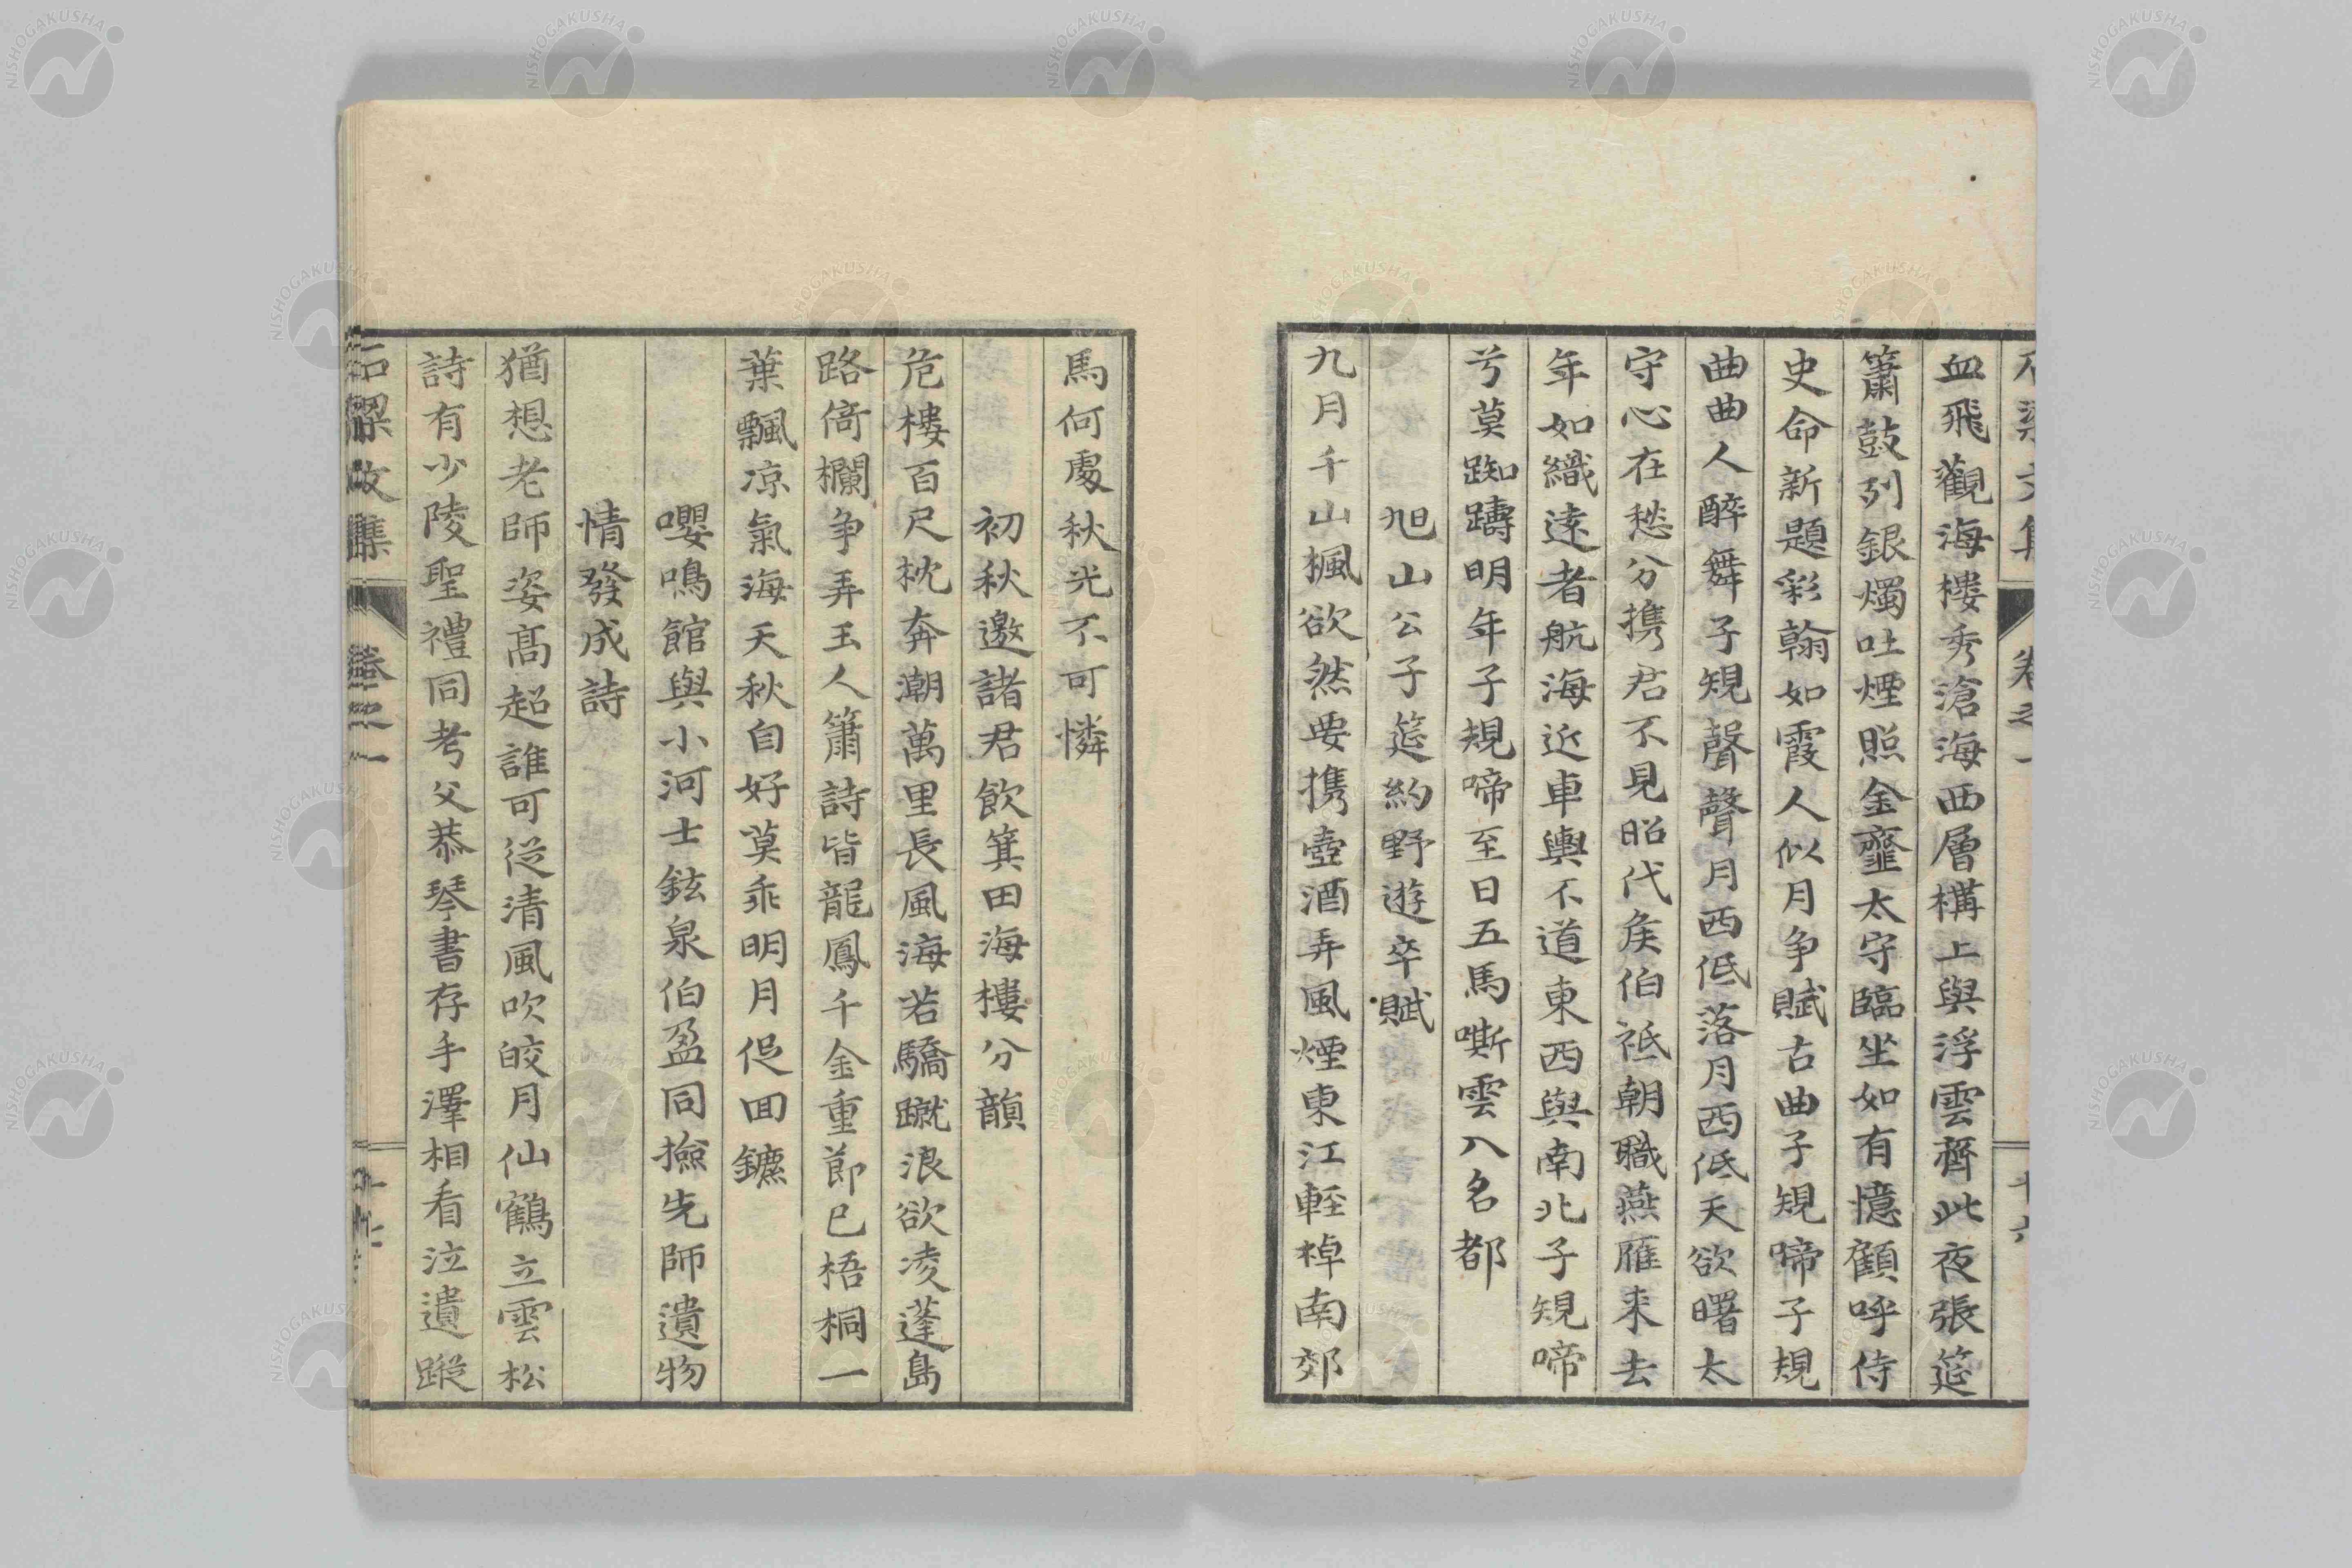 血飛觀海樓秀滄海西層構上與浮雲齊此夜張筵
簫鼓列銀燭吐煙照金虀太守臨坐如有憶顧呼侍
史命新題彩翰如霞人似月爭賦古曲子規啼子規
曲曲人醉舞子規聲聲月西低落月西低天欲曙太
守心在愁分携君不見昭代矦伯祗朝職燕雁来去
年如織遠者航海近車輿不道東西與南北子規啼
兮莫踟躊明年子規啼至日五馬嘶雲入名都
旭山公子筵約野遊卒賦
九月千山楓欲然要携壺酒弄風煙東江輕棹南郊
馬何處秋光不可憐
初秋邀諸君飲箕田海樓分韻
危樓百尺枕奔潮萬里長風海若驕蹴浪欲凌蓬島
路倚欄争弄玉人簫詩皆龍鳳千金重節已梧桐一
葉飄凉氣海天秋自好莫乖明月促回鑣
嚶鳴館與小河士鉉泉伯盈同撿先師遺物
情發成詩
猶想老師姿髙超誰可從清風吹皎月仙鶴立雲松
詩有少陵聖禮同考父恭琴書存手澤相看泣遺蹤
卷之一
NISHOGAKUSHA